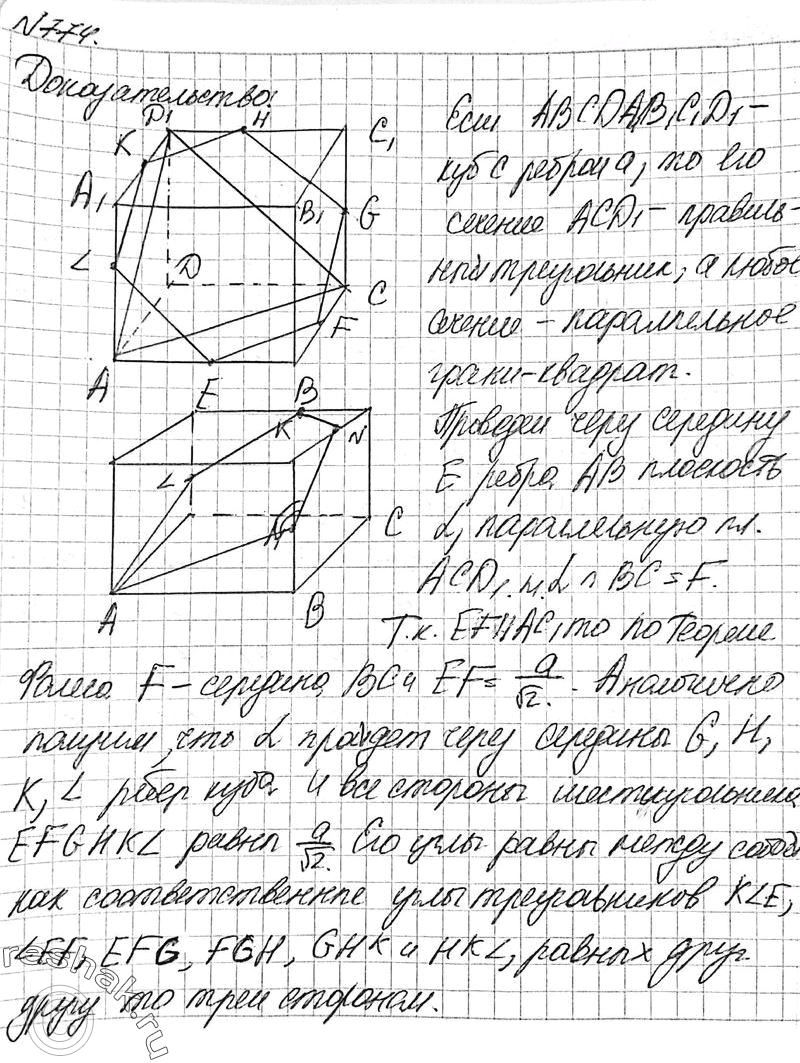 N 774.
Доказательство:
D₁ H
K C₁
A₁ B₁ G
L D
C
F
A E B
K N
L
C
A B
Если ABCDA₁B₁C₁D₁ –
куб с ребром a, то его
сечение ACD₁ – правиль-
ный треугольник, а любое
сечение – параллельное
грани – квадрат.
Проведем через середину
E ребра AB плоскость
α, параллельную пл.
ACD₁ и α ∩ BC = F.
Т.к. EF ∥ AC, то по теореме
Фалеса F – середина BC и EF = a/√2. Аналогично
получим, что α пройдет через середины G, H,
K, L ребер куба и все стороны шестиугольника
EFGHKL равны a/√2. Его углы равны между собой
как соответственные углы треугольников KLE,
LEF, EFG, FGH, GHK и HKL, равных друг
другу по трем сторонам.
reshak.ru